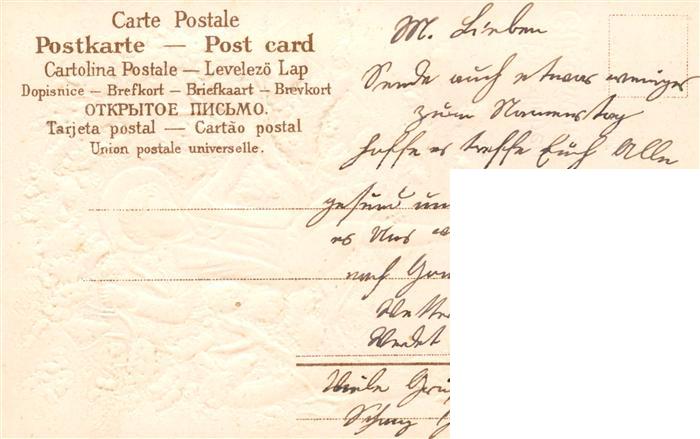 Carte Postale
Postkarte — Post card
Cartolina Postale — Levelező Lap
Dopisnice — Brefkort — Briefkaart — Brevkort
ОТКРЫТОЕ ПИСЬМО.
Tarjeta postal — Cartão postal
Union postale universelle.
M. Lieben
Sende auch etwas weniges
zum Namenstag
hoffe es treffe Euch Alle
gesund
es Uns
nach
Viele